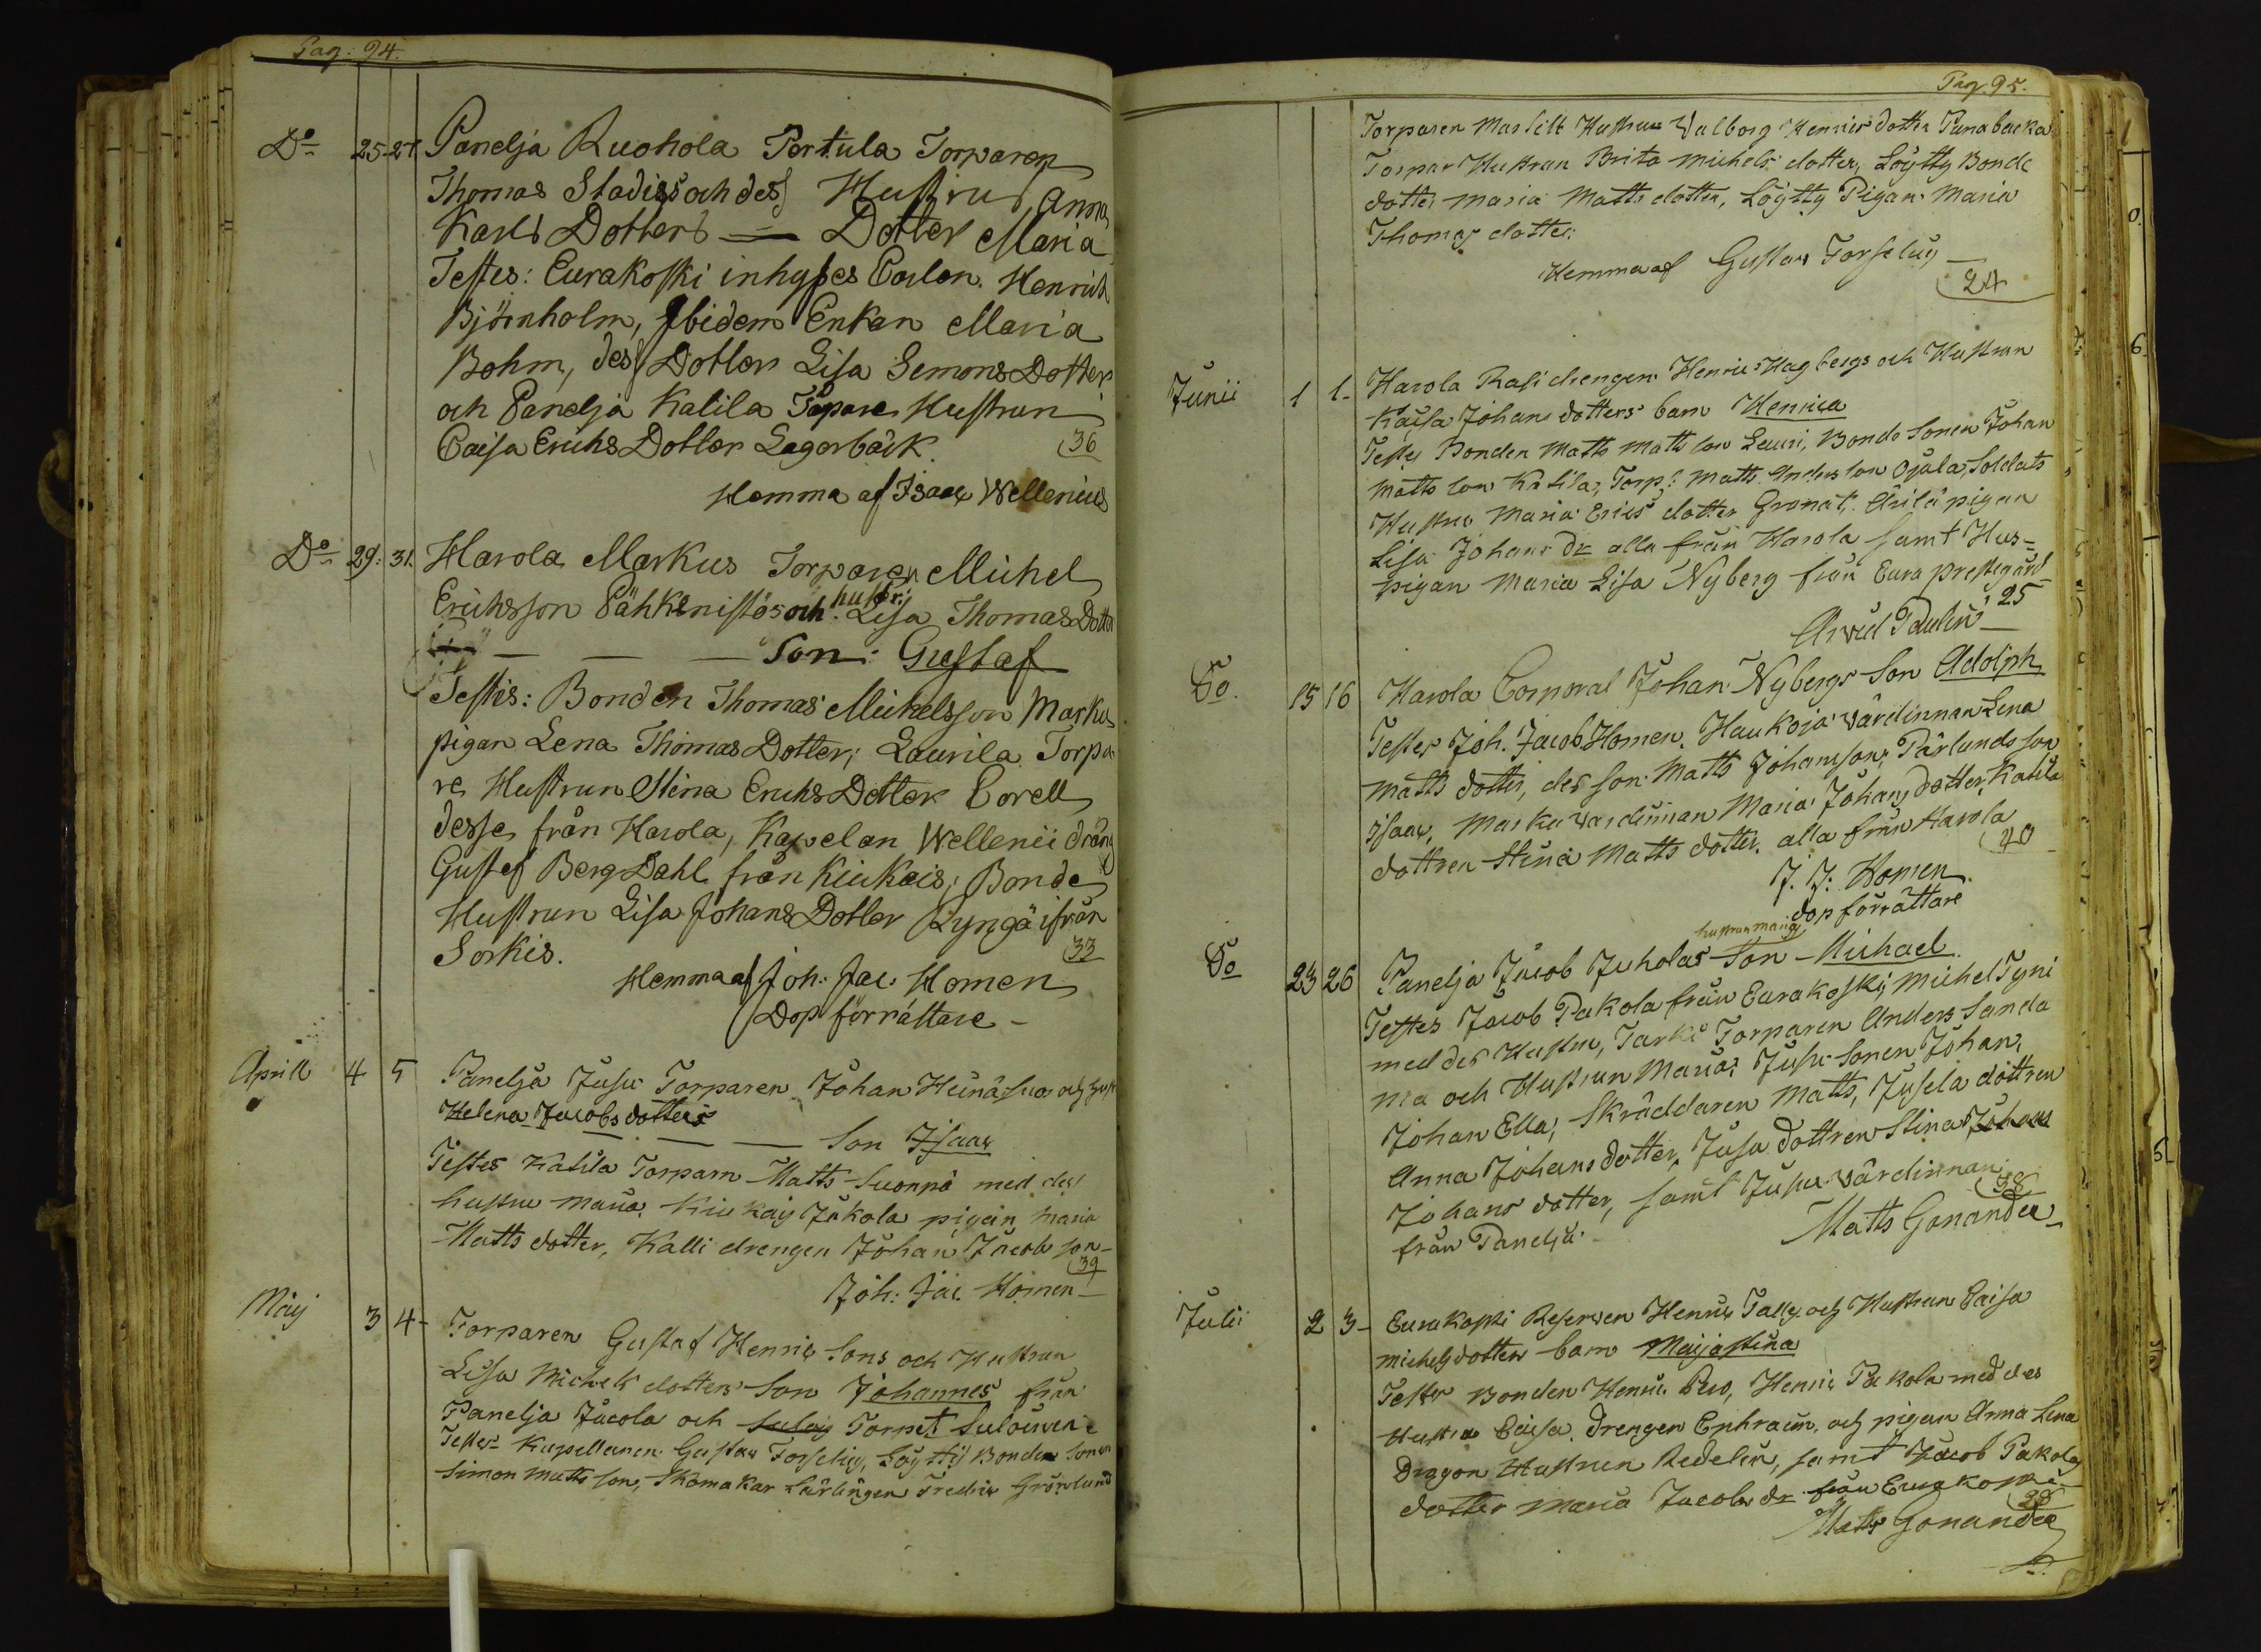 Pag: 94.
Do 25 27. Panelja Ruohola Pertula Torparen
Thomas Stadigs och des Hustru Anna
Karls Dotters — Dotter Maria
Testes: Eurakoski inhyses Carlon. Henrich
Björnholm, Ibidem Enkan Maria
Bohm, des Dotter Lisa Simons Dotter
och Panelja Katila Torpare Hustrun
Caisa Erichs Dotter Lagerbäck. 36
Hemma af Isaac Wellenius
Do 29. 31. Harola Markus Torparen Michel
Erichsson Pähkenistös och hustr: Lisa Thomas Dotter
— — — Son: Gustaf
Testis: Bonden Thomas Michelsson Markus
pigan Lena Thomas Dotter; Laurila Torpa-
re Hustrun Stina Erichs Dotter Corell
desse från Harola, Kapelan Wellenii dräng
Gustaf Berg Dahl från Kiukais; Bonde
Hustrun Lisa Johans Dotter Ryngä ifrån
Sorkis. 33
Hemma af Joh: Jac: Homen
Dop förrättare —
Aprill 4 5 Panelja Jusu Torparen Johan Heinäsuo och hust
Helena Jacobs dotters
— — — Son Isaac
Testes Katila Torparn Matts Suonpä med des
hustru Maria. Kiukais Jäkola pigan Maria
Matts dotter, Kalli drengen Johan Jacob son — 39
Joh: Jac. Homen —
Maij 3 4- Torparen Gustaf Henric Sons och Hustrun
Lisa Michels dotters Son Johannes från
Panelja Jacola och Torpet
Testes Kapellanen Gustav Forselius, Löyttij Bonden Sonen
Simon Matts son, Skomakar Lärlingen Fredric Grönlund
Pag. 95.
Torparen Hustrun Walborg Henrics dotter Panabacka
Torpar Hustrun Brita Michels dotter, Löytty Bonde
dotter Maria Matts dotter, Löytty Pigan Maria
Thomas dotter.
Hemma af Gustav Forselius — 24
Junii 1 1- Harola Rasi drengen Henric Hagbergs och Hustrun
Kajsa Johans dotters barn Henrica
Testes Bonden Matts Matts son Lauri, Bonde Sonen Johan
Matts son Katila, Torp: Matts Anders son Ojala, Soldats
Hustru Maria Erics dotter Granat. Arila pigan
Lisa Johans Dr alla från Harola samt Hus-
pigan Maria Lisa Nyberg från Eura prestgård 25
Arvid Paulin —
Do. 15 16 Harola Corporal Johan Nybergs Son Adolph
Testes Joh. Jacob Homen, Haukoja wärdinnan Lena
Matts dotter, des son Matts Johansson; Pärlunds son
Isaac, Markus wardinnan Maria Johans dotter, Katila
dottren Stina Matts dotter. alla från Harola 40
J. J: Homen.
dop förrättare
hustrun Maria
Do 23 26 Panelja Jacob Juholas Son - Michael
Testes Jacob Pakola från Eurakoski, Michel Tyni
med des Hustru, Tarki Torparen Anders Sanda
ma och Hustrun Maria; Jusu Sonen Johan,
Johan Ella; Skräddaren Matts, Jusela dottren
Anna Johans dotter, Jusu dottren Stina Johans
Johans dotter, samt Jusu wärdinnan 38
från Panelja. Matts Gonander —
Julii 2 3- Eurakoski Reserven Henric Talls och Hustrun Caisa
Michels dotters barn Maijastina
Testes Bonden Henric Pero, Henric Pakola med des
Hustru Caisa. drengen Ephraim, och pigan Anna Lena
Dragon Hustrun Redelin, samt Jacob Pakolas
dotter Maria Jacobs dr från Eurakoski 28
Matts Gonander